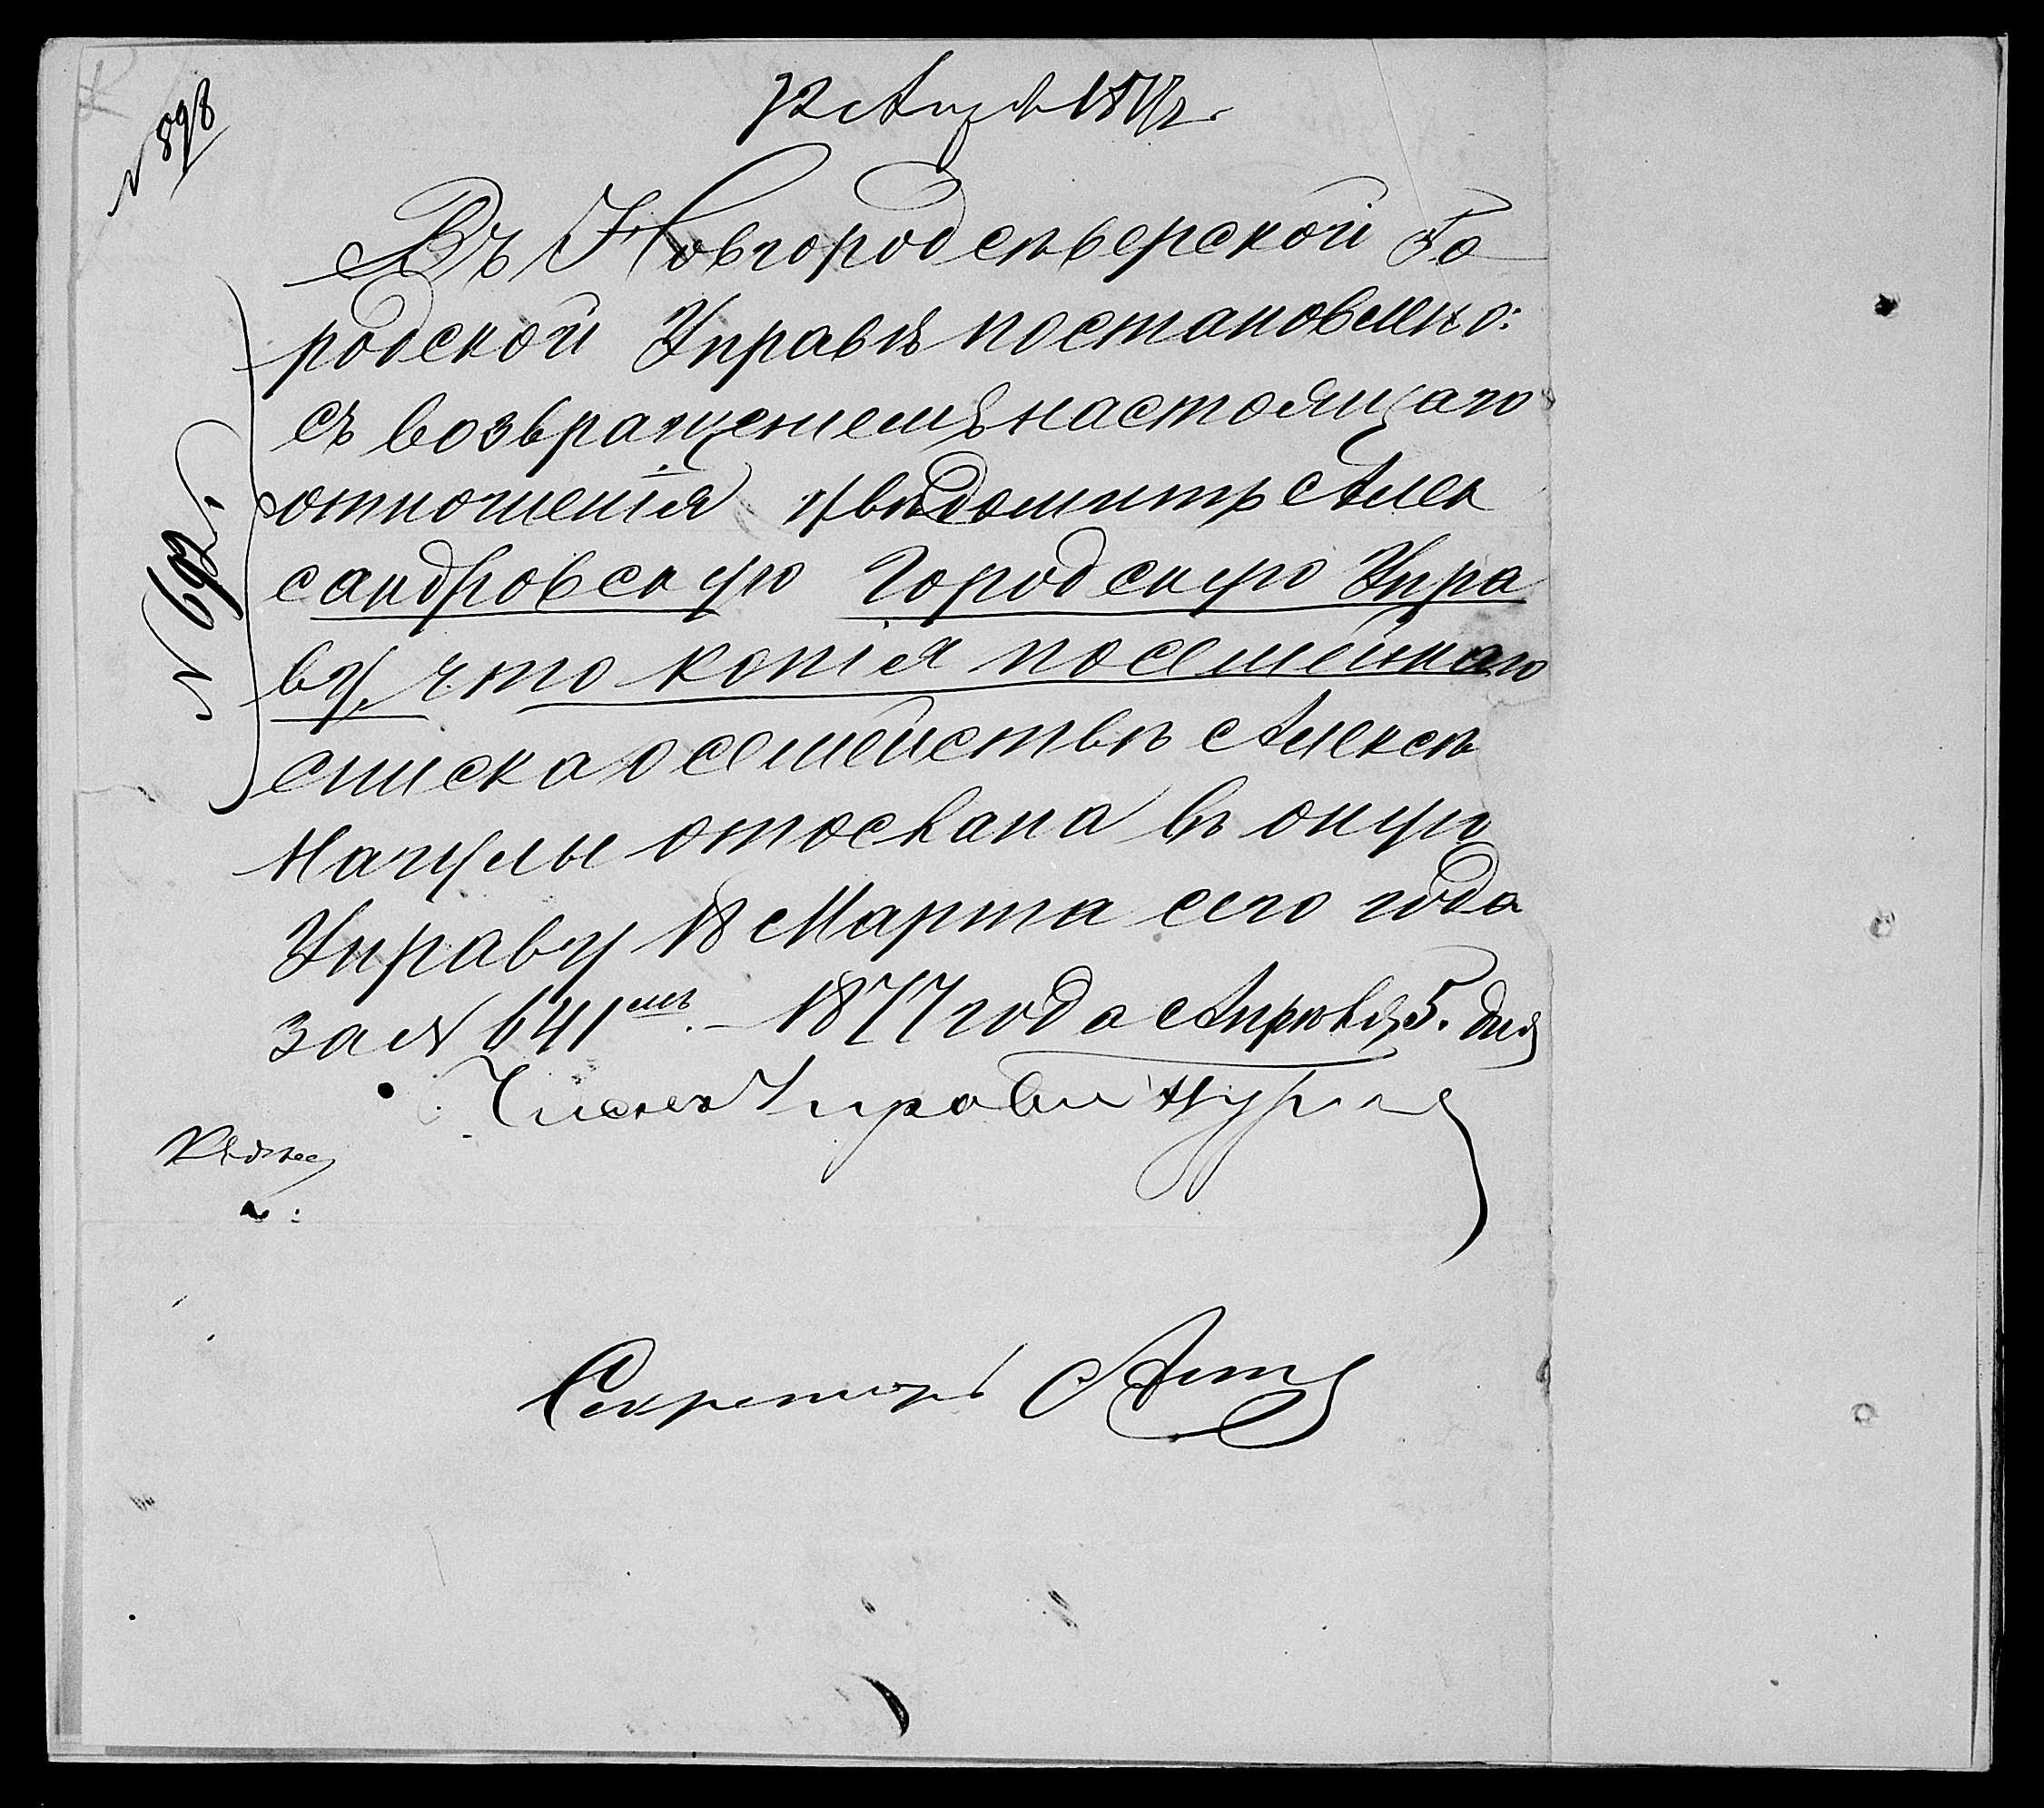 № 898
12 Апр 1877 г.
Въ Новгородсѣверской Го
родской Управѣ постановлено:
съ возвращениемъ настоящаго
отношенія увѣдомить Алек
сандровскую Городскую Упра
ву, что копія посемейнаго
списка о семействѣ Алексѣ
Нагулы отослана въ оную
Управу 18 Марта сего года
за № 641мъ. – 1877 года Апрѣля 5. дня
№ 692
Членъ Управы
Секретарь